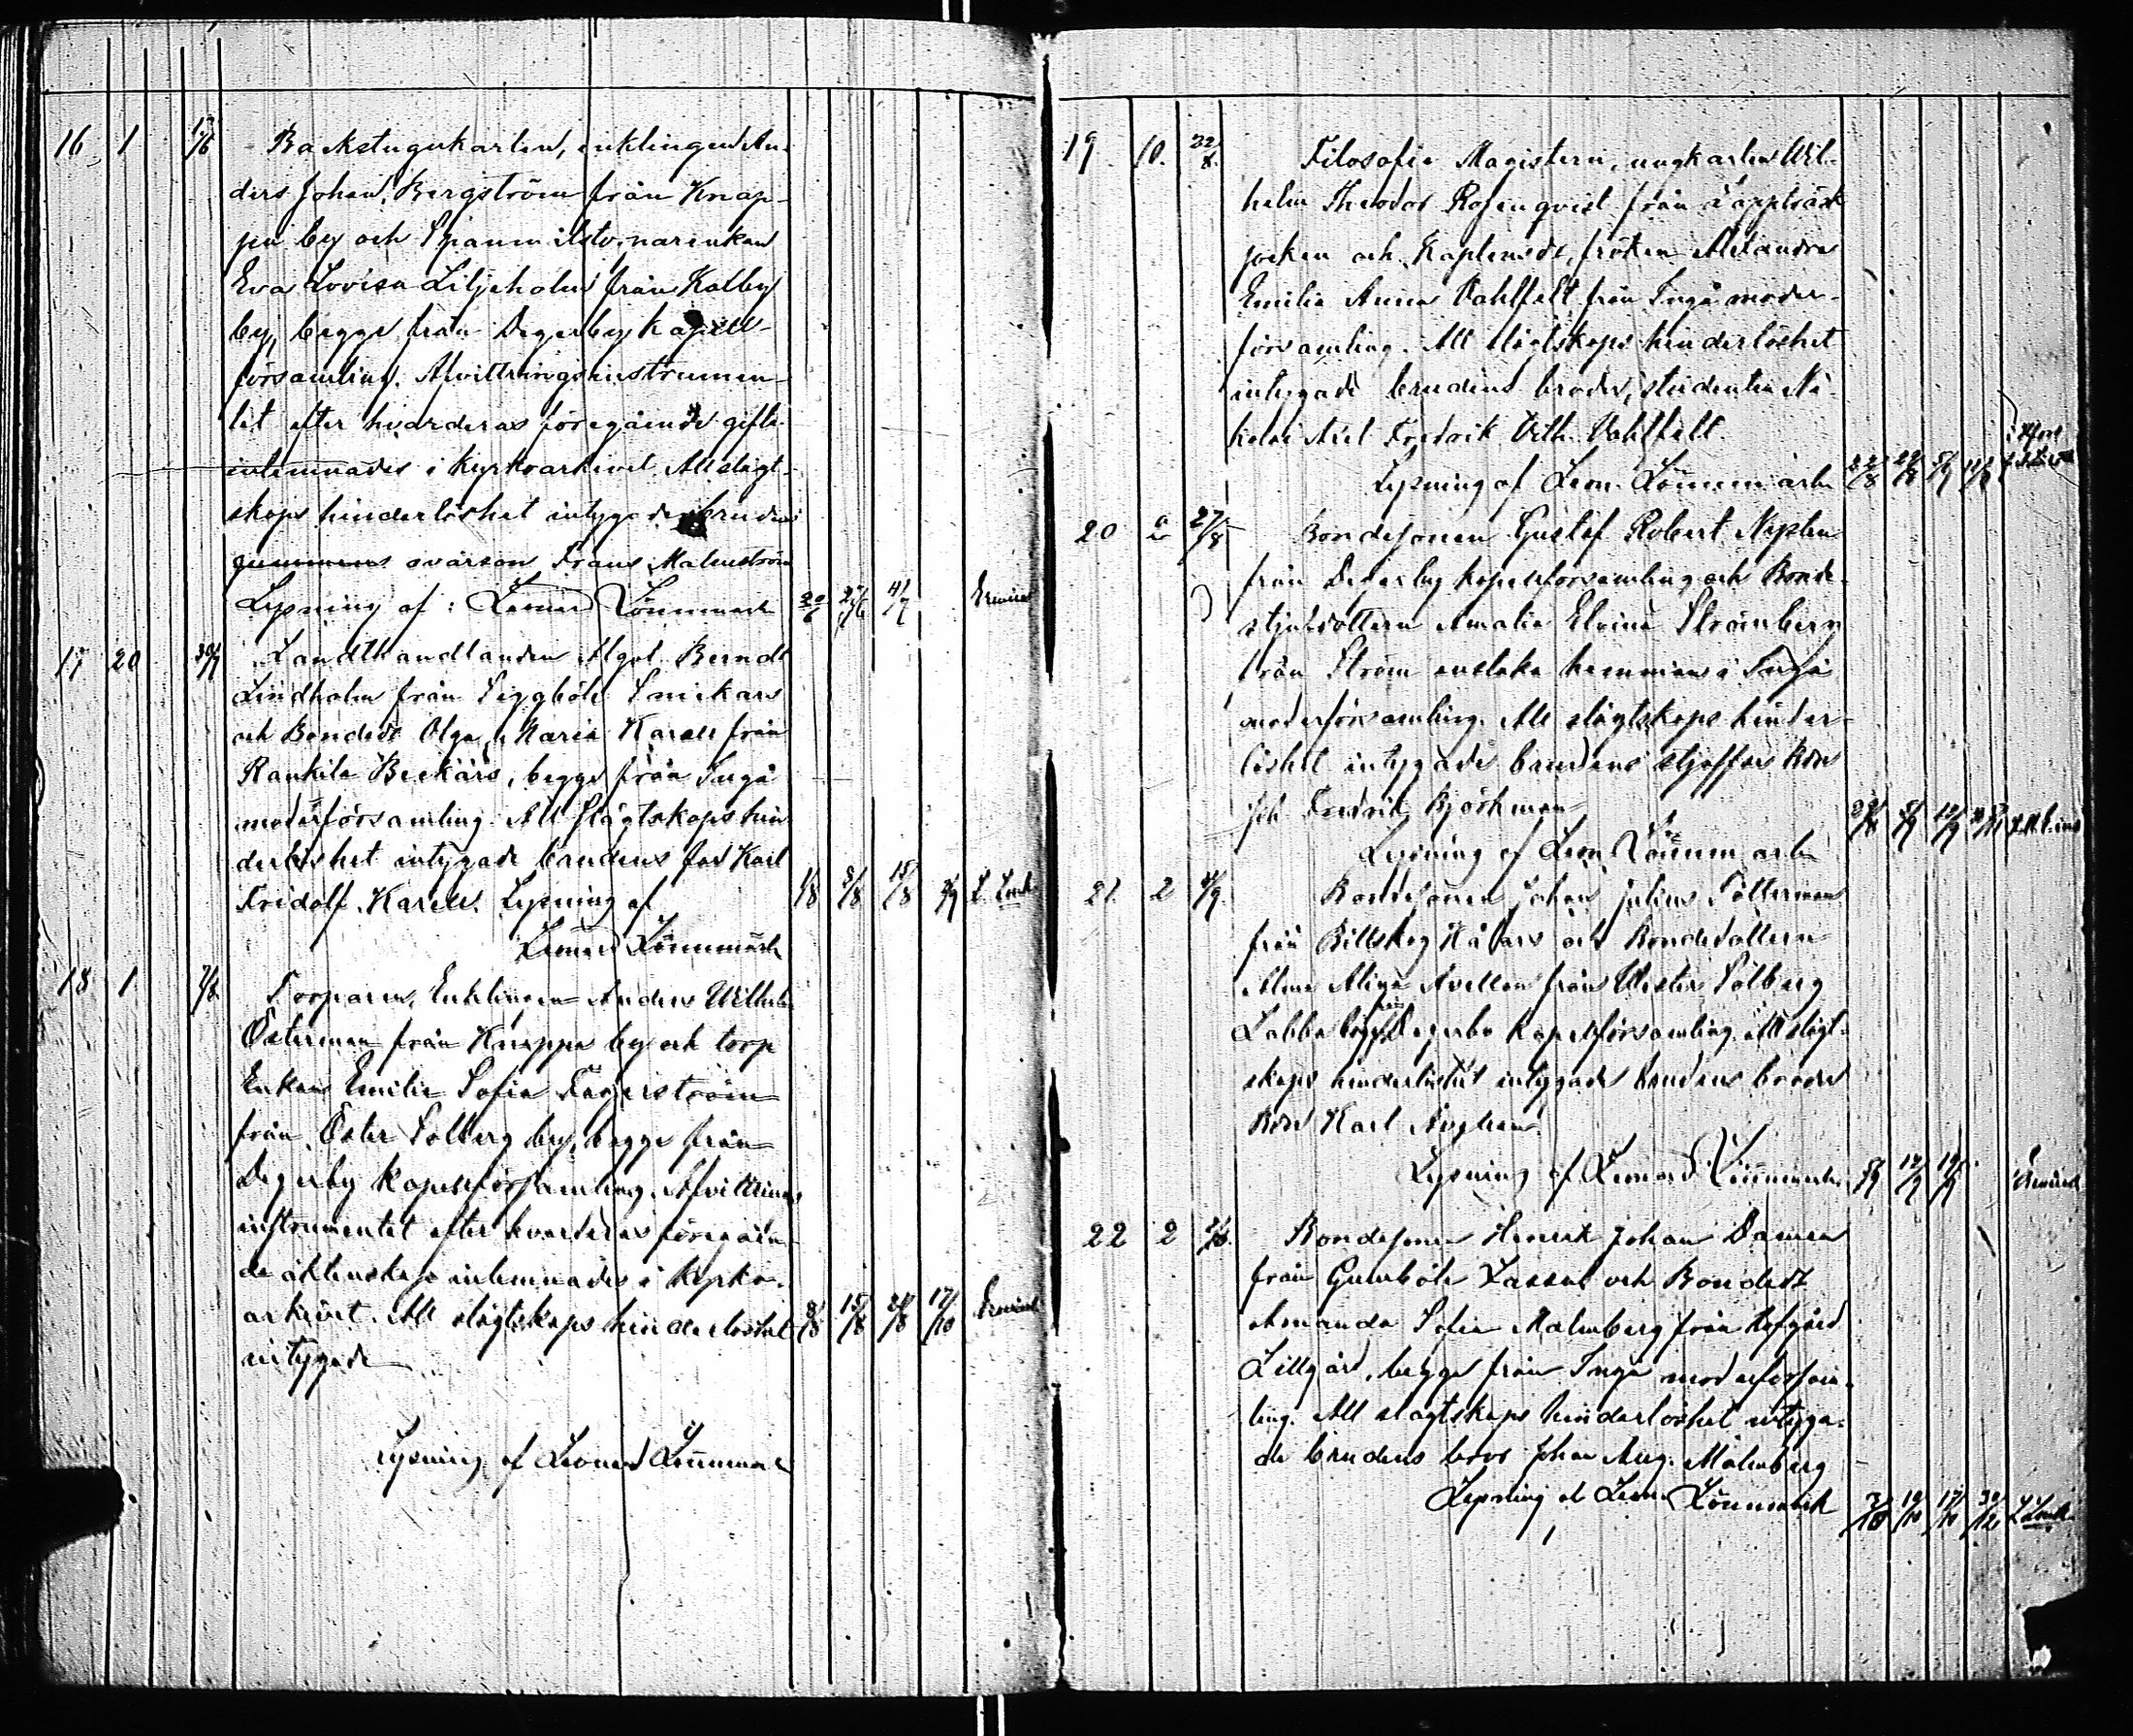 16 1 17/6 Backstugukarlen, enklingen An-
ders Johan Bergström från Knap-
pa by och enkan
Eva Lovisa Liljeholm från Kalby
by, begge från Degerby kapell-
församling. Afvittringsinstrumen-
tet efter hvarderas föregående gifte
inlemnades i kyrkoarkivet. All slägt-
skaps hinderlöshet intygade brud
gummens svärson Frans Malmström
Lysning af: Leonard Lönnmark 20/6 27/6 4/7
17 20 30/7 Landthandlanden Algot Berndt
Lindholm från Siggböle Snickars
och Bondedr Olga Maria Karell från
Rankila Beckars, begge från Ingå
moderförsamling. All slägtskaps hin
derlöshet intygade brudens far Karl
Fridolf Karell. Lysning af 1/8 8/8 15/8
Leonard Lönnmark
18 1 7/8 Torparen, Enklingen Anders Wilhelm
Österman från Knappa by och torp
Enkan Emilia Sofia Fagerström
från Öster Solberg by, begge från
Degerby kapellförsamling. Afvittrings
instrumentet efter hvarderas föregåen-
de äktenskap inlemnades i kyrko-
arkivet. All slägtskaps hinderlöshet 8/8 15/8 17/10
intygade
Lysning af Leonard Lönnmark
19 10. 22/8. Filosofie Magistern, ungkarlen Wil-
helm Theodor Rosenqvist från
socken och Kaplansdr, fröken Alexandra
Emilia Anna Vahlfelt från Ingå moder-
församling. All slägtskaps hinderlöshet
intygade brudens broder, studenten
Axel Fredrik Vilh. Vahlfelt.
Lysning af Leon. Lönnmark 22/8 29/8 5/9
20 27/8 Bondesonen Gustaf Robert Nyplen
från Degerby kapellförsamling och Bonde-
stjufdottern Amalia Elvina Strömberg
från Ström enstaka hemman i Ingå
moderförsamling. All slägtskaps hinder-
löshet intygade brudens stjuffar Bdn
Joh Fredrik Björkman
Lysning af Leon Lönnmark 29/8 5/9 12/9
21. 2 4/9. Bondesonen Johan Julius Sölterman
från Billskog och Bondedottern
Alma Alina Avellan från Wester Solberg
Labba begge Degerby kapellförsamling. All slägt-
skaps hinderlöshet intygade brudens broder
Bdn Karl
Lysning af Leonard Lönnmark 5/9 12/9 19/9
22 2 Bondesonen Henrik Johan
från Gumböle Lassus och Bondedr
Amanda Sofia Malmberg från
Lillgård, begge från Ingå moderförsam-
ling. All slägtskaps hinderlöshet intyga-
de brudens bror Johan Aug. Malmberg
Lysning af Leon Lönnmark 3/10 10/10 17/10